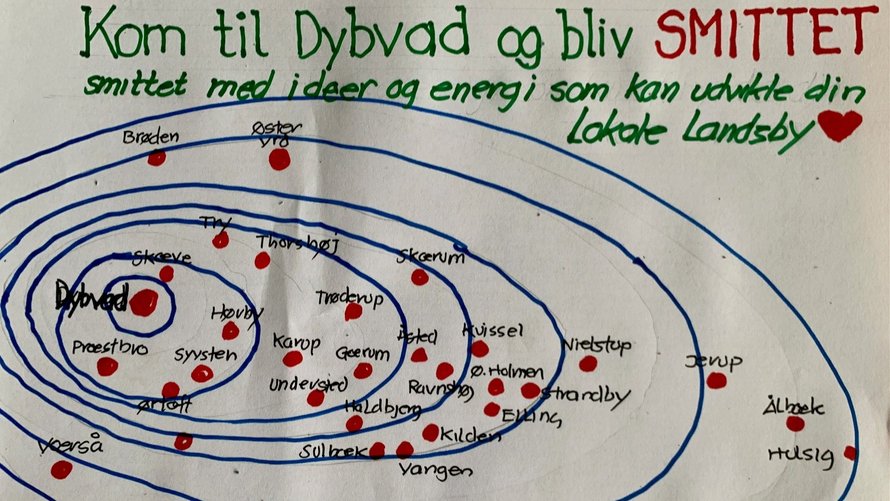 Kom til Dybvad og bliv SMITTET
smittet med ideer og energi som kan udvikle din
Lokale Landsby
Brøden
Øster
vrå
Try
Thorshøj
Skæve
Skærum
Dybvad
Trøderup
Hørby
Åsted
Kvissel
Præstbro
Syvsten
Karup
Gærum
Nielstup
Jerup
Ø. Holmen
Understed
Ravnshøj
Strandby
Ørtoft
Haldbjerg
Elling
Ålbæk
Voerså
Sulbæk
Kilden
Hulsig
Vangen